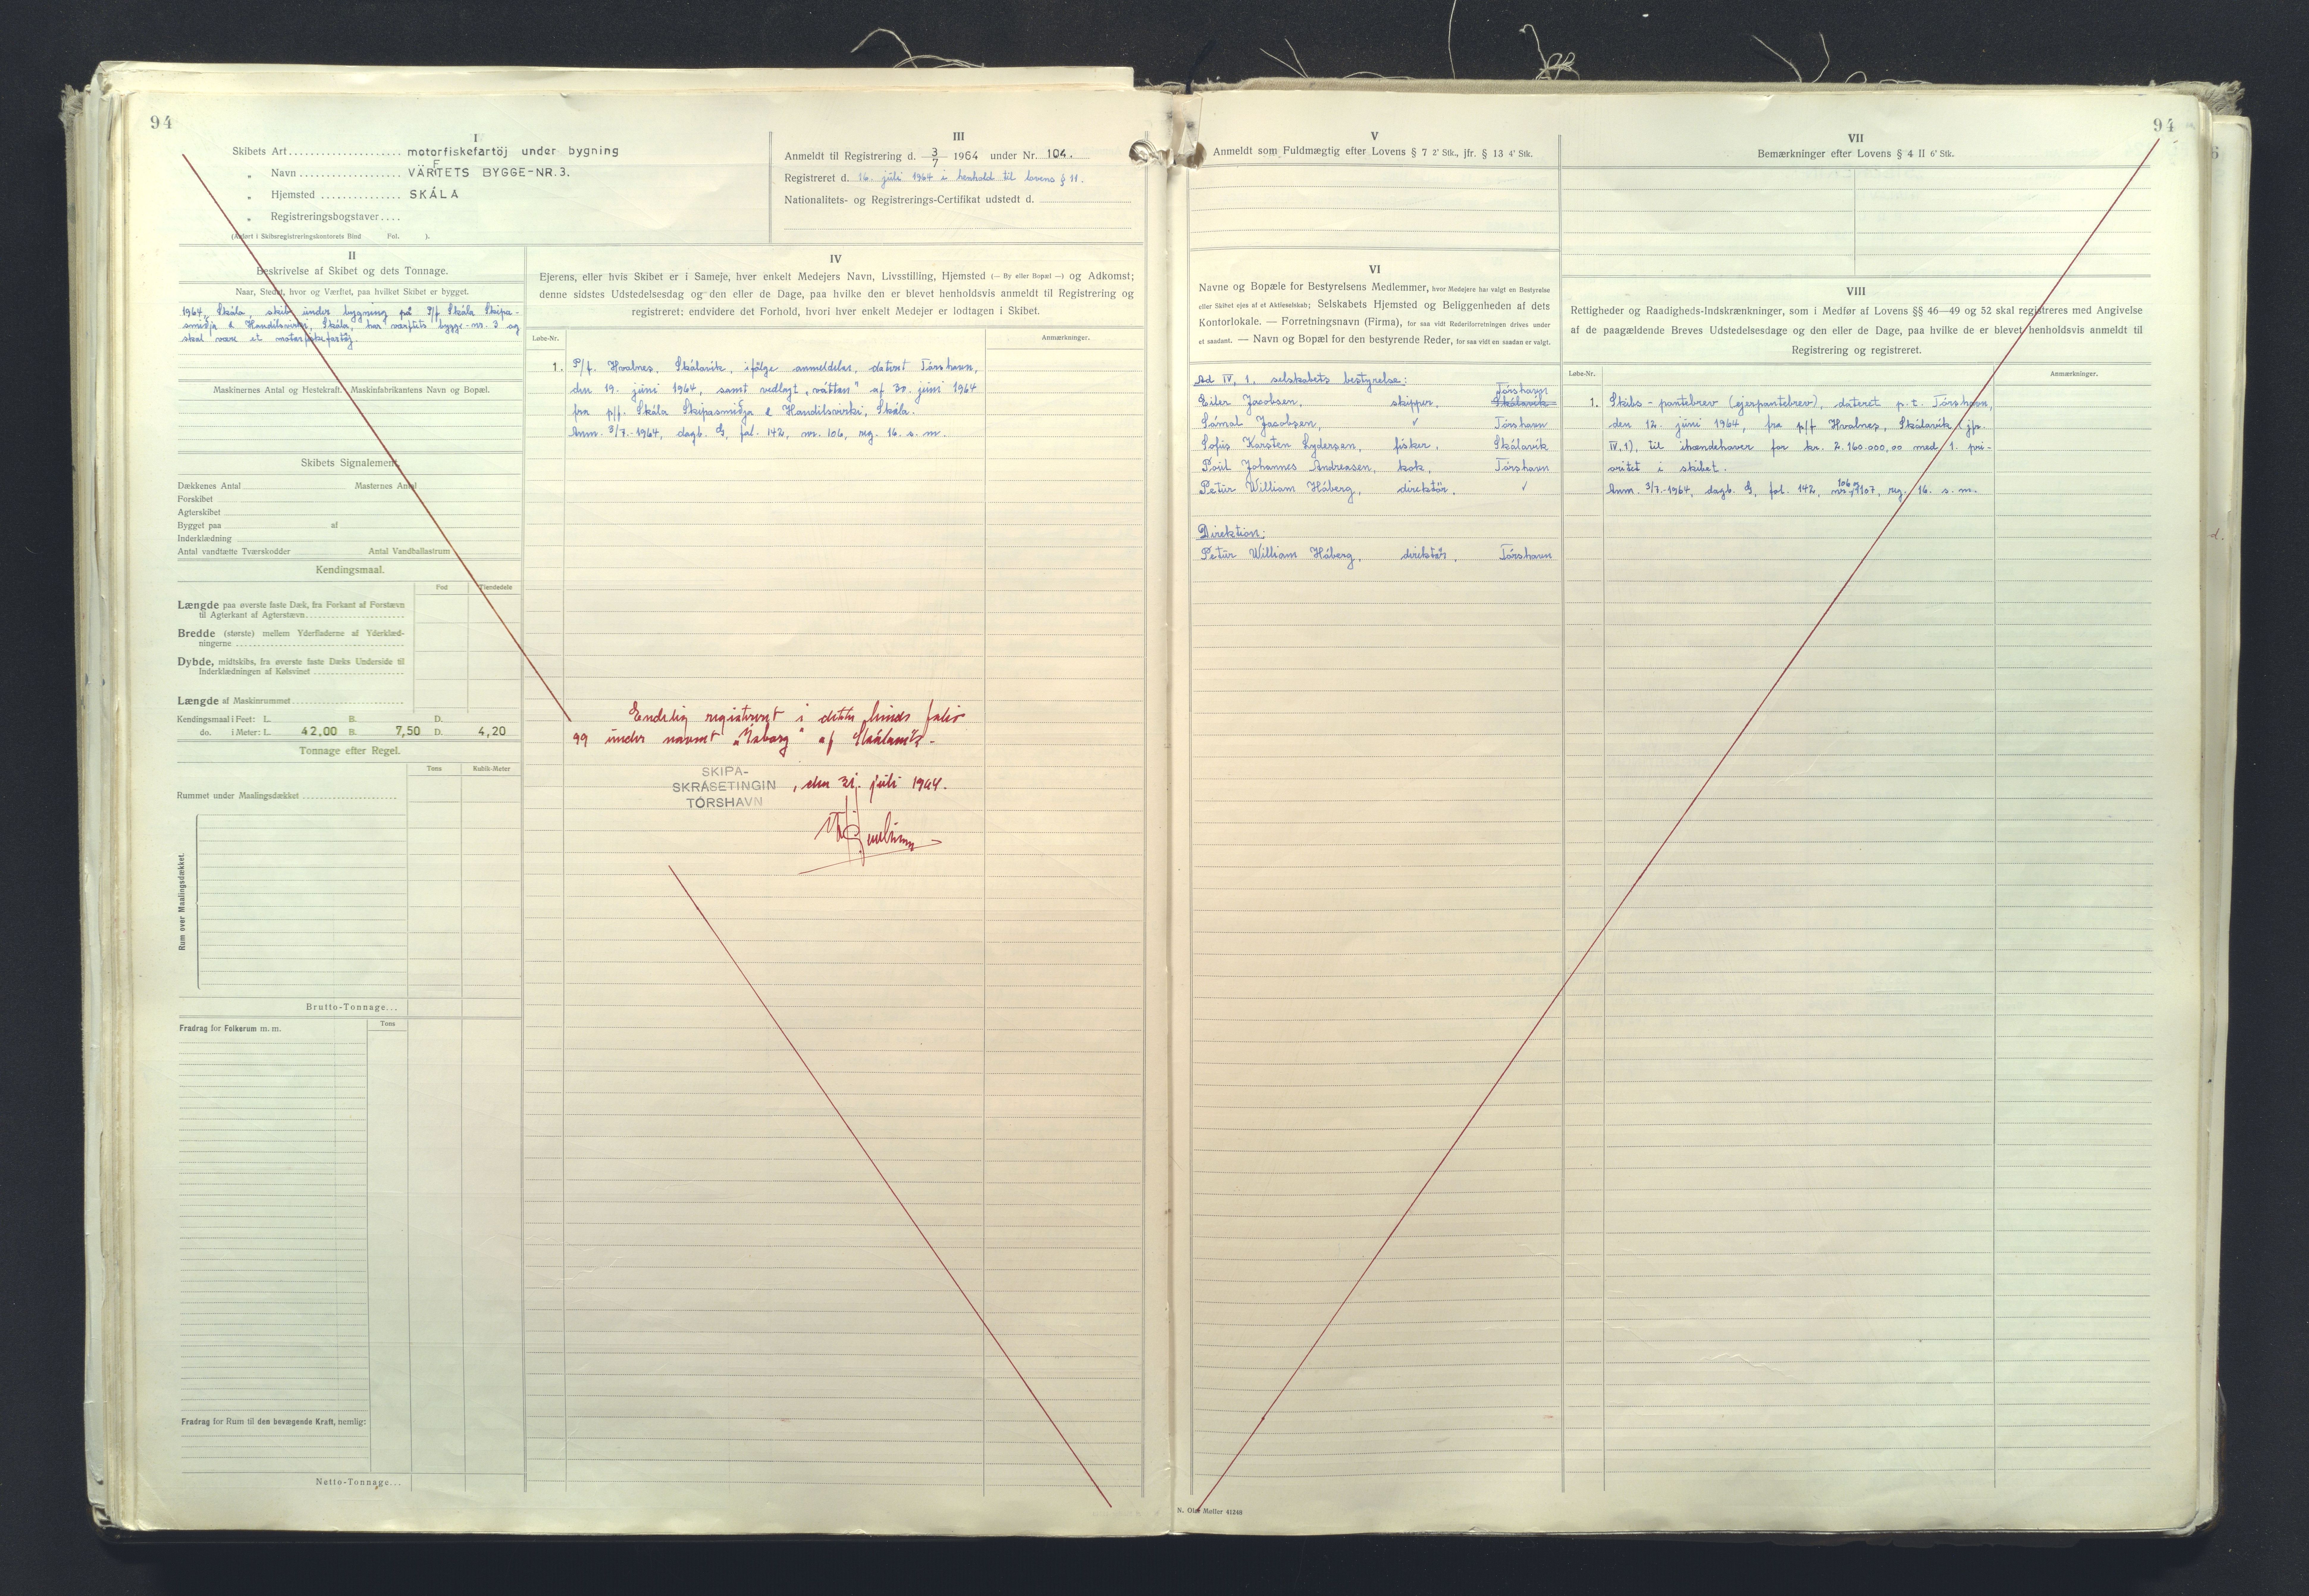 94
I
Skibets Art.................... motorfiskefartöj under bygning
„ Navn .................. VÄRFTETS BYGGE-NR.3.
„ Hjemsted ............... SKÁLA
„ Registreringsbogstaver....
(Anført i Skibsregistreringskontorets Bind Fol. ).
III
Anmeldt til Registrering d. 3/7 1964 under Nr. 104.
Registreret d. 16. juli 1964 i henhold til lovens § 11.
Nationalitets- og Registrerings-Certifikat udstedt d.
II
Beskrivelse af Skibet og dets Tonnage.
Naar, Stedet, hvor og Værftet, paa hvilket Skibet er bygget.
1964, Skála, skib under bygning på P/f Skála Skipa-
smiðja & Handilsvirki, Skála, har værftets bygge-nr. 3 og
skal være et motorfiskefartöj.
Maskinernes Antal og Hestekraft. Maskinfabrikantens Navn og Bopæl.
Skibets Signalement.
Dækkenes Antal Masternes Antal
Forskibet
Agterskibet
Bygget paa af
Inderklædning
Antal vandtætte Tværskodder Antal Vandballastrum
Kendingsmaal.
Fod Tiendedele
Længde paa øverste faste Dæk, fra Forkant af Forstævn
til Agterkant af Agterstævn
Bredde (største) mellem Yderfladerne af Yderklæd-
ningerne
Dybde, midtskibs, fra øverste faste Dæks Underside til
Inderklædningen af Kølsvinet
Længde af Maskinrummet
Kendingsmaal i Feet: L. B. D.
do. i Meter: L. 42,00 B. 7,50 D. 4,20
Tonnage efter Regel.
Tons Kubik-Meter
Rummet under Maalingsdækket
Rum over Maalingsdækket.
Brutto-Tonnage...
Fradrag for Folkerum m. m.
Tons
Fradrag for Rum til den bevægende Kraft, nemlig:
Netto-Tonnage...
IV
Ejerens, eller hvis Skibet er i Sameje, hver enkelt Medejers Navn, Livsstilling, Hjemsted (— By eller Bopæl —) og Adkomst;
denne sidstes Udstedelsesdag og den eller de Dage, paa hvilke den er blevet henholdsvis anmeldt til Registrering og
registreret; endvidere det Forhold, hvori hver enkelt Medejer er lodtagen i Skibet.
Løbe-Nr. Anmærkninger.
1. P/f. Hvalnes, Skálavík, ifølge anmeldelse, dateret Tórshavn,
den 19. juni 1964, samt vedlagt „váttan" af 30. juni 1964
fra p/f. Skála Skipasmiðja & Handilsvirki, Skála.
Anm. 3/7.-1964, dagb. G, fol. 142, nr. 106, reg. 16. s. m.
Endelig registreret i dette binds folio
99 under navnet „Ísborg" af Skálavík.-
SKIPA-
SKRÁSETINGIN
TÓRSHAVN
, den 31. juli 1964.
94
V
Anmeldt som Fuldmægtig efter Lovens § 7 2' Stk., jfr. § 13 4' Stk.
VI
Navne og Bopæle for Bestyrelsens Medlemmer, hvor Medejere har valgt en Bestyrelse
eller Skibet ejes af et Aktieselskab; Selskabets Hjemsted og Beliggenheden af dets
Kontorlokale. — Forretningsnavn (Firma), for saa vidt Rederiforretningen drives under
et saadant. — Navn og Bopæl for den bestyrende Reder, for saa vidt en saadan er valgt.
Ad IV, 1, selskabets bestyrelse:
Tórshavn
Eiler Jacobsen, skipper, Skálavík
Sámal Jacobsen, ✓ Tórshavn
Sofus Karsten Lydersen, fisker, Skálavík
Poul Johannes Andreasen, kok, Tórshavn
Petur William Háberg, direktör, ✓
Direktion:
Petur William Háberg, direktör, Tórshavn
VII
Bemærkninger efter Lovens § 4 II 6' Stk.
VIII
Rettigheder og Raadigheds-Indskrænkninger, som i Medfør af Lovens §§ 46—49 og 52 skal registreres med Angivelse
af de paagældende Breves Udstedelsesdage og den eller de Dage, paa hvilke de er blevet henholdsvis anmeldt til
Registrering og registreret.
Løbe-Nr. Anmærkninger.
1. Skibs-pantebrev (ejerpantebrev), dateret p.t. Tórshavn,
den 12. juni 1964, fra p/f Hvalnes, Skálavík (jfr.
IV,1), til ihændehaver for kr. 2.160.000,00 med 1. pri-
oritet i skibet.
Anm. 3/7.-1964, dagb. G, fol. 142, nr. 106 og 107, reg. 16. s. m.
N. Olaf Møller 41248